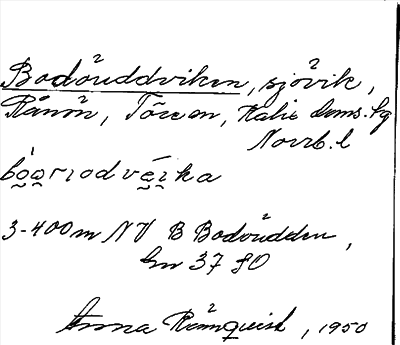 Bodöuddviken, sjövik,
Rånön, Töreån, Kalix doms. hg
Norrb. l
3-400 m NV B Bodöudden,
hm 37 80
Anna Rönnqvist, 1950